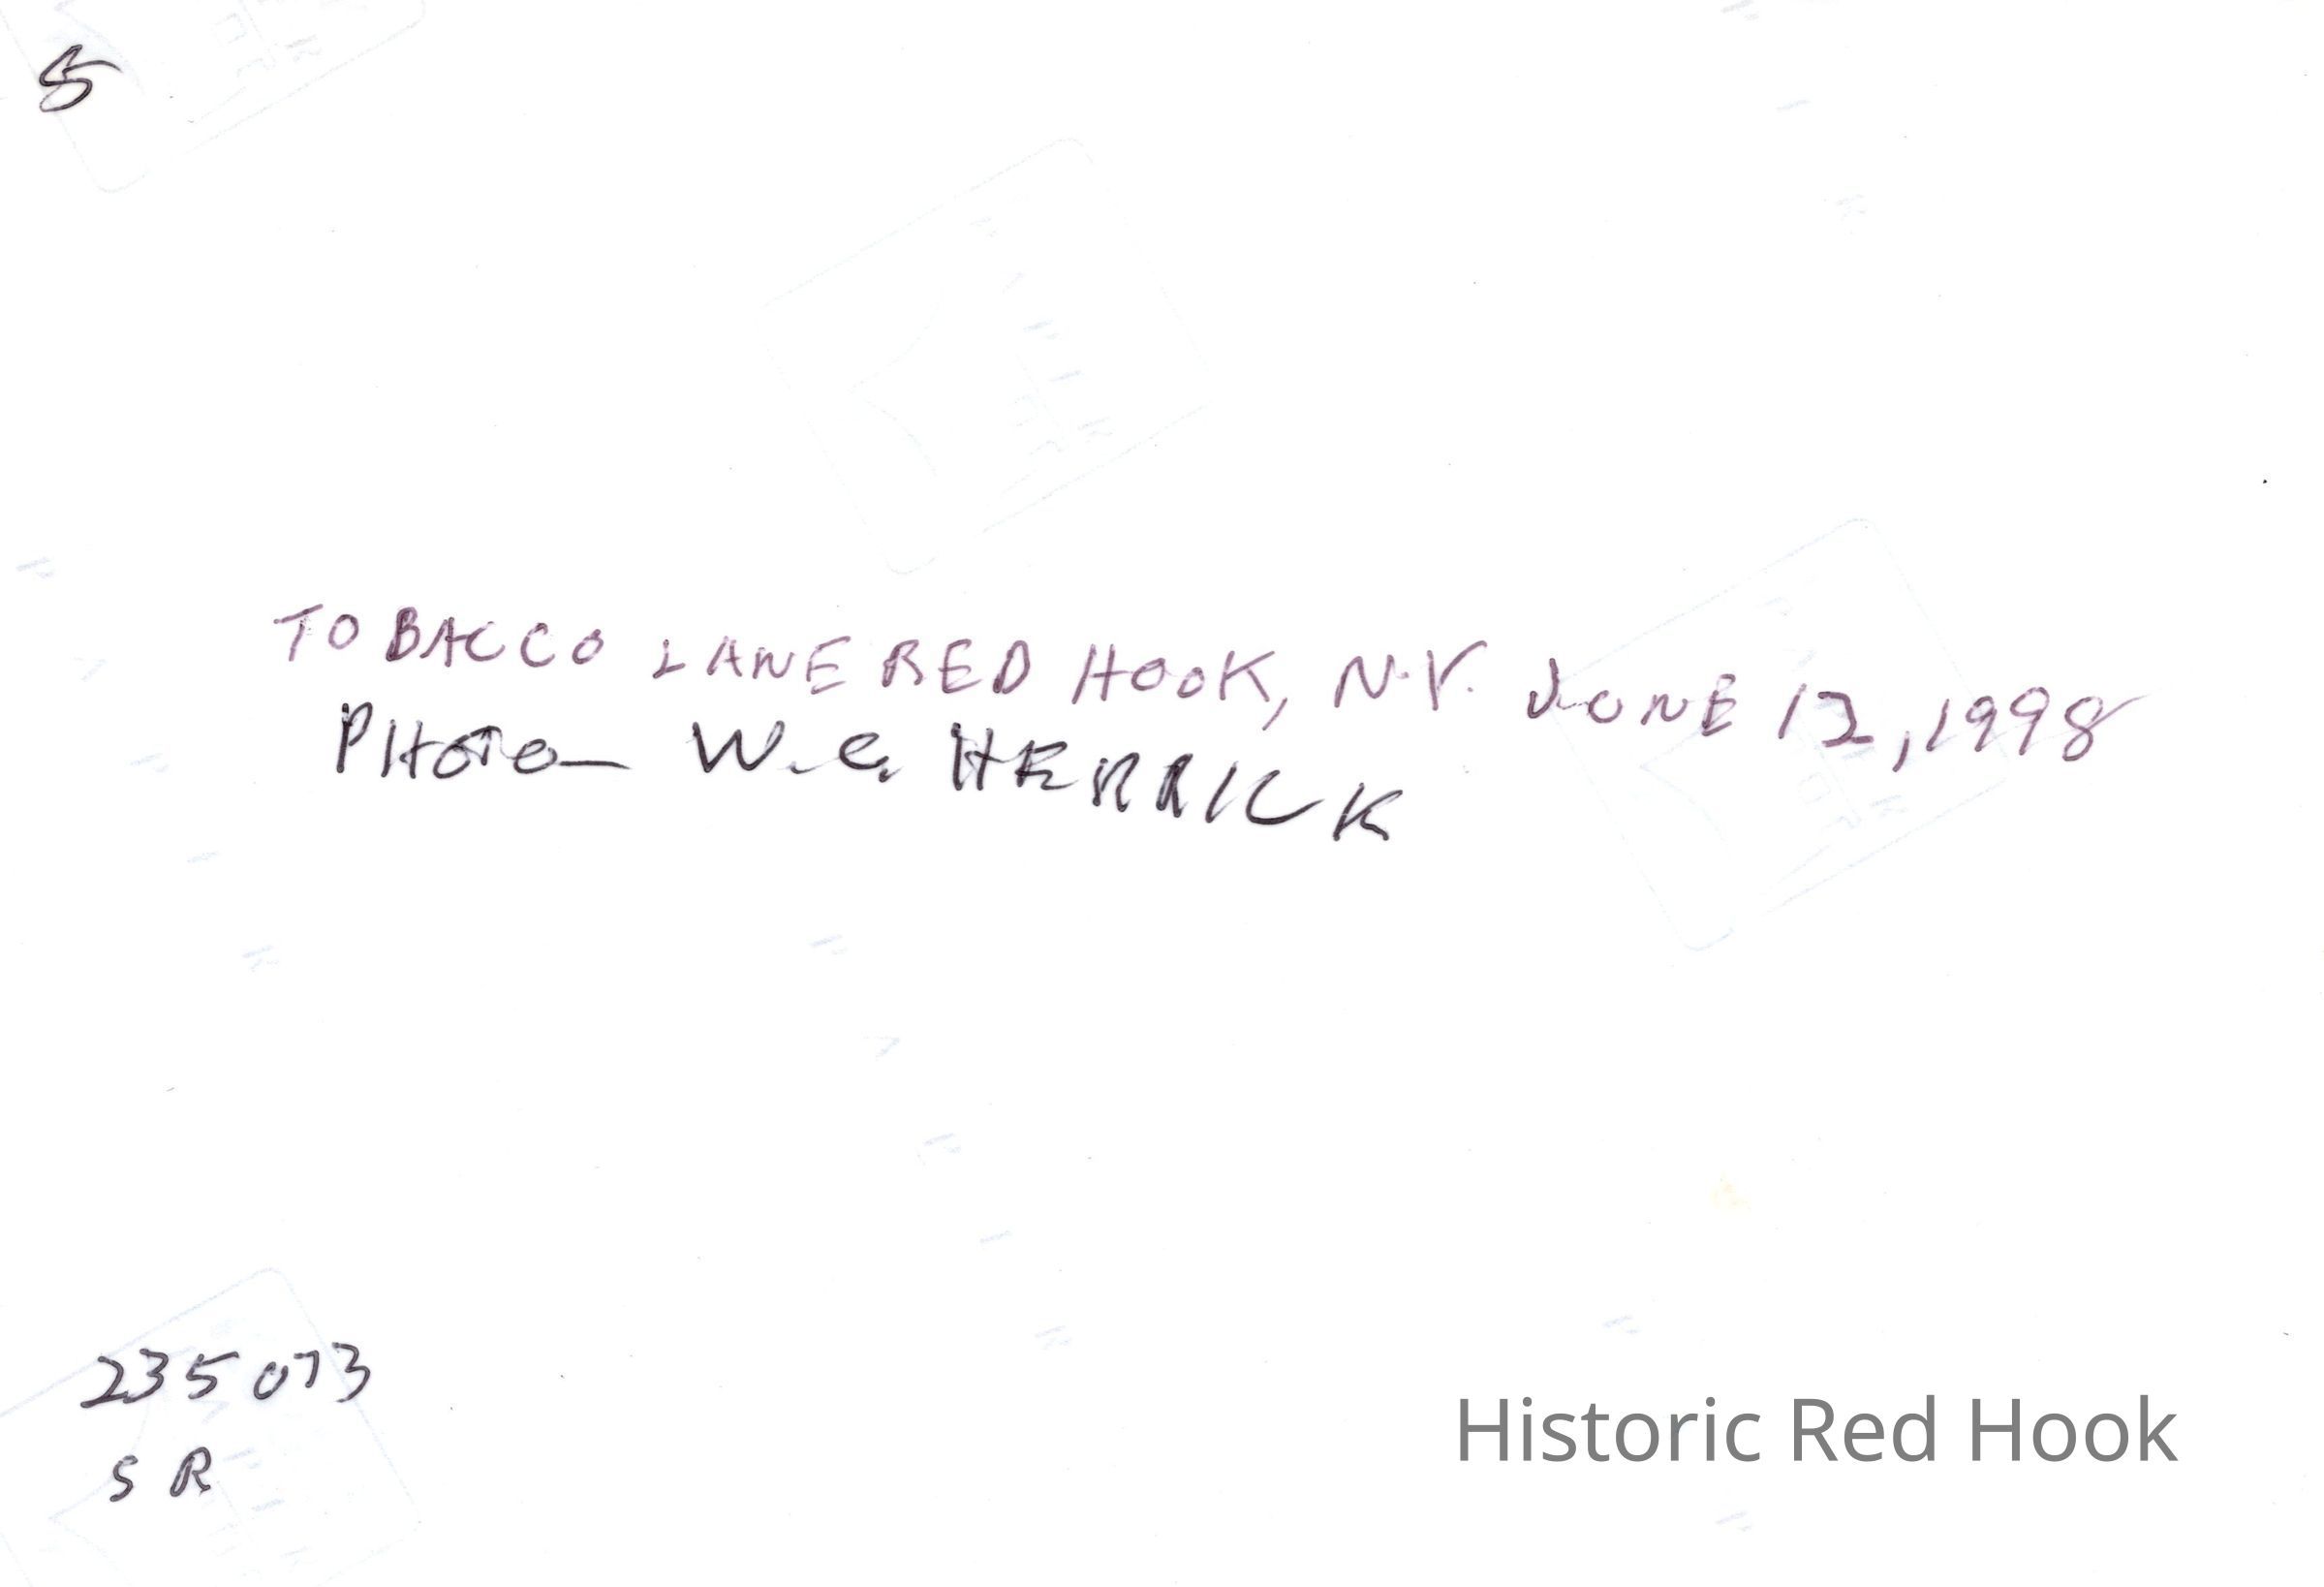 5
TOBACCO LANE RED HOOK, N.Y. JUNE 12, 1998
PHOTO— W.C. HERRICK
235073
SR
Historic Red Hook